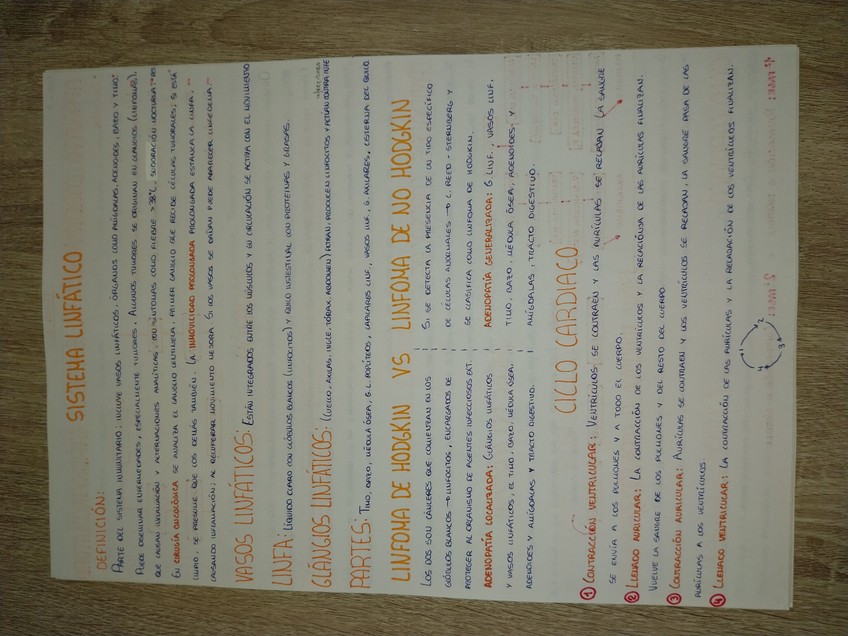 SISTEMA LINFÁTICO
DEFINICIÓN:
PARTE DEL SISTEMA INMUNITARIO: INCLUYE VASOS LINFÁTICOS, ÓRGANOS COMO AMÍGDALAS, ADENOIDES, BAZO Y TIMO.
PUEDE ORIGINAR ENFERMEDADES, ESPECIALMENTE TUMORES. ALGUNOS TUMORES SE ORIGINAN EN GANGLIOS (LINFOMAS),
QUE CAUSAN INFLAMACIÓN Y ALTERACIONES ANALÍTICAS, CON SÍNTOMAS COMO FIEBRE > 38°C, SUDORACIÓN NOCTURNA
EN CIRUGÍA ONCOLÓGICA SE ANALIZA EL GANGLIO CENTINELA, PRIMER GANGLIO QUE RECIBE CÉLULAS TUMORALES; SI ESTÁ
LIMPIO, SE PRESUME QUE LOS DEMÁS TAMBIÉN. LA INMOVILIDAD PROLONGADA PROLONGADA ESTANCA LA LINFA,
CAUSANDO INFLAMACIÓN; AL RECUPERAR MOVIMIENTO MEJORA. SI LOS VASOS SE DAÑAN PUEDE APARECER LINFEDEMA.
VASOS LINFÁTICOS: ESTÁN INTEGRADOS ENTRE LOS MÚSCULOS Y SU CIRCULACIÓN SE ACTIVA CON EL MOVIMIENTO
LINFA: LÍQUIDO CLARO CON GLÓBULOS BLANCOS (LINFOCITOS) Y QUILO INTESTINAL CON PROTEÍNAS Y GRASAS.
GLÁNGIOS LINFÁTICOS: (CUELLO, AXILAS, INGLE, TÓRAX, ABDOMEN) FILTRAN, PRODUCEN LINFOCITOS Y ACTÚAN CONTRA INFE
PARTES: TIMO, BAZO, MÉDULA ÓSEA, G.L. POPLÍTEOS, CAPILARES LINF., VASOS LINF., G. AXILARES, CISTERNA DEL QUILO
LINFOMA DE HODGKIN VS LINFOMA DE NO HODGKIN
LOS DOS SON CÁNCERES QUE COMIENZAN EN LOS
GLÓBULOS BLANCOS → LINFOCITOS, ENCARGADOS DE
PROTEGER AL ORGANISMO DE AGENTES INFECCIOSOS EXT.
ADENOPATÍA LOCALIZADA: GLANGIOS LINFÁTICOS
Y VASOS LINFÁTICOS, EL TIMO, BAZO, MÉDULA ÓSEA,
ADENOIDES Y AMÍGDALAS Y TRACTO DIGESTIVO.
SI, SE DETECTA LA PRESENCIA DE UN TIPO ESPECÍFICO
DE CÉLULAS ANORMALES → C. REED - STERNBERG Y
SE CLASIFICA COMO LINFOMA DE HODGKIN.
ADENOPATÍA GENERALIZADA: G. LINF., VASOS LINF.
TIMO, BAZO, MÉDULA ÓSEA, ADENOIDES Y
AMÍGDALAS, TRACTO DIGESTIVO.
CICLO CARDIACO
1 CONTRACCIÓN VENTRICULAR: VENTRÍCULOS SE CONTRAEN Y LAS AURÍCULAS SE RELAJAN. LA SANGRE
SE ENVÍA A LOS PULMONES Y A TODO EL CUERPO.
2 LLENADO AURICULAR: LA CONTRACCIÓN DE LOS VENTRÍCULOS Y LA RELACIÓNSA DE LAS AURÍCULAS FINALIZAN.
VUELVE LA SANGRE DE LOS PULMONES Y DEL RESTO DEL CUERPO.
3 CONTRACCIÓN AURICULAR: AURÍCULAS SE CONTRAEN Y LOS VENTRÍCULOS SE RELAJAN, LA SANGRE PASA DE LAS
AURÍCULAS A LOS VENTRÍCULOS.
4 LLENADO VENTRICULAR: LA CONTRACCIÓN DE LAS AURÍCULAS Y LA RELAJACIÓN DE LOS VENTRÍCULOS FINALIZAN.
1
2
3
4